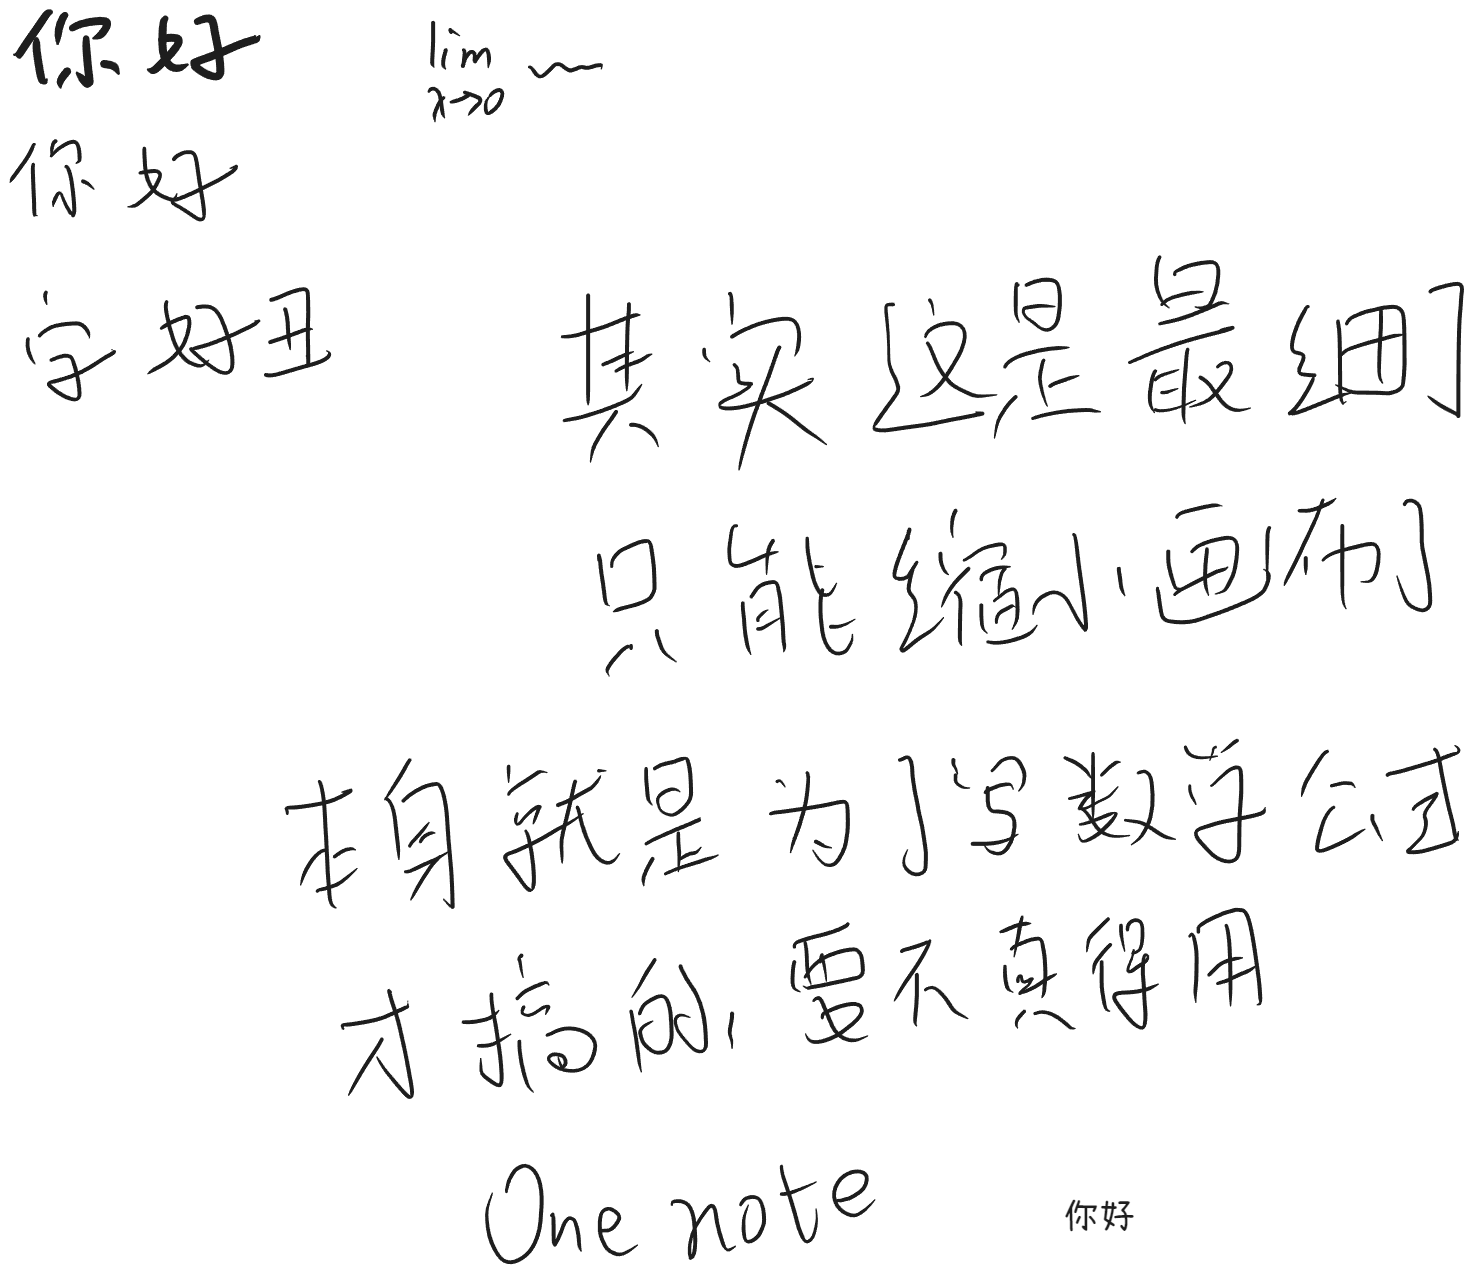 你好
lim x→0
你好
字好丑
其实这是最细了
只能缩小画布了
本身就是为了写数学公式
才搞的,要不真得用
One note
你好